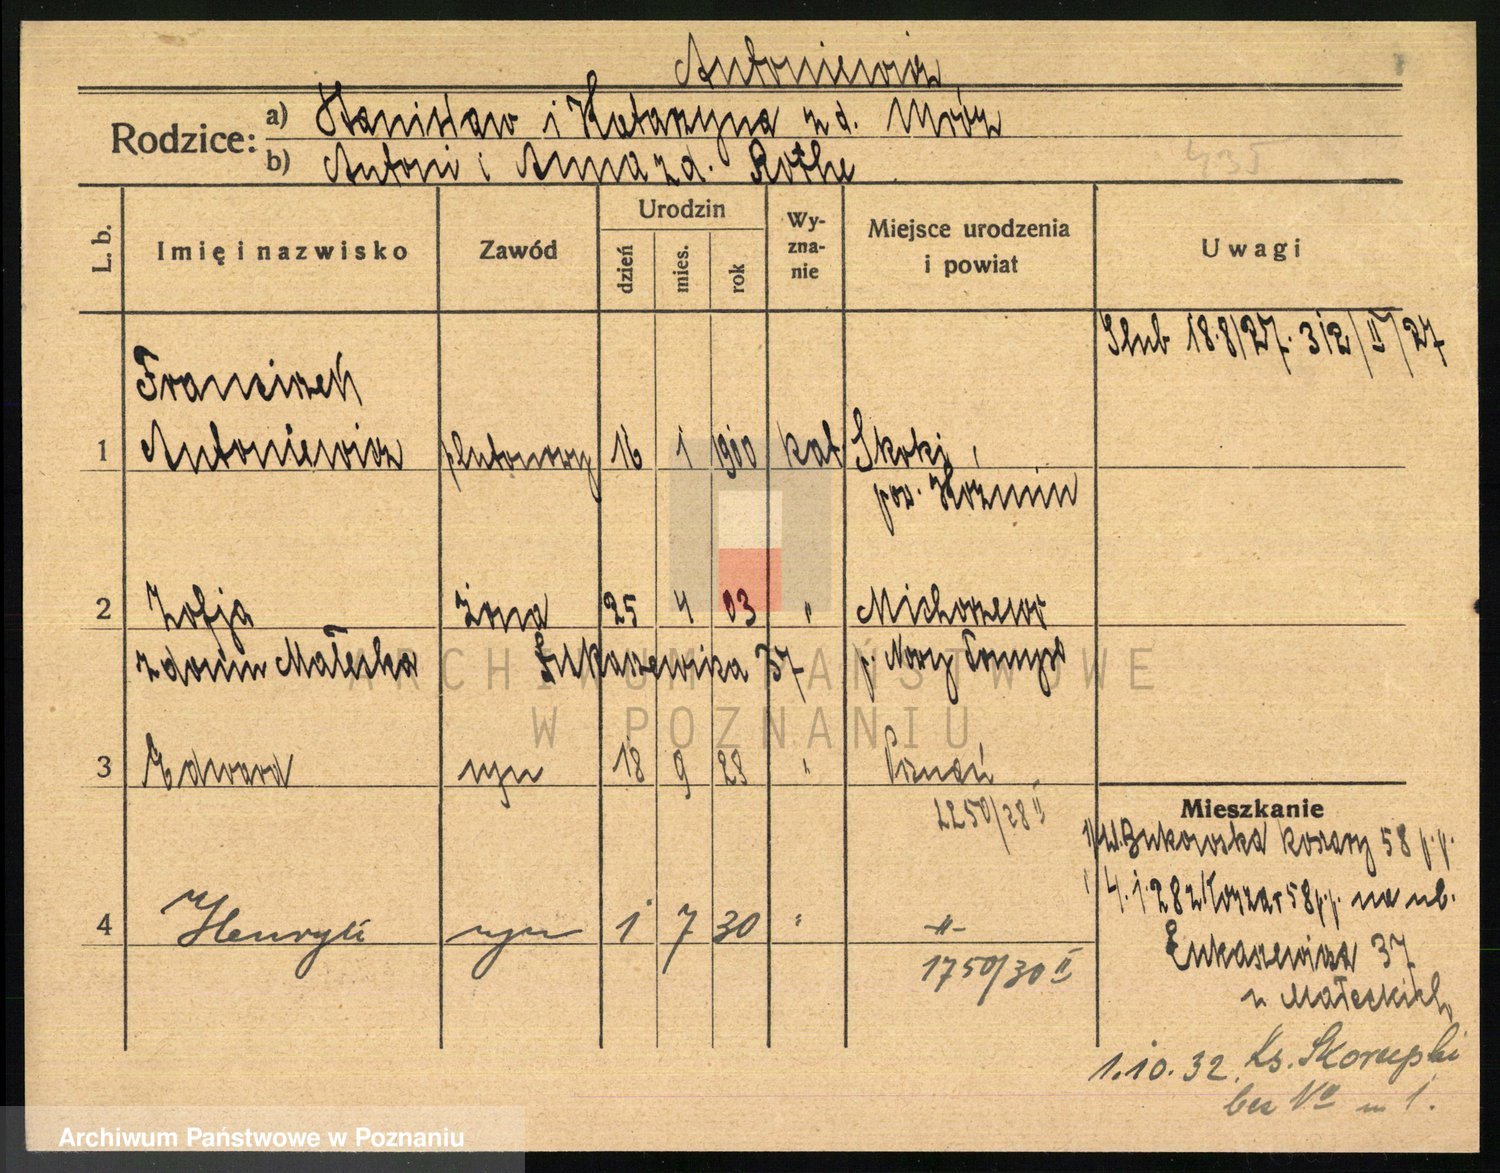 Antoniewicz
Rodzice: a) Stanisław i Katarzyna z d. Mróz
b) Antoni i Anna z d. Rothe
435
L. b.
Imię i nazwisko
Zawód
Urodzin
dzień
mies.
rok
Wy-
zna-
nie
Miejsce urodzenia
i powiat
Uwagi
Ślub 18.8/27. 312/II/27
Franciszek
1 Antoniewicz plutonowy 16 1 1900 kat Skoki,
pow. Koźmin
2 Zofja żona 25 4 03 " Michorzewo
z domu Małecka Łukaszewicza 37 p. Nowy Tomyśl
3 Edward syn 18 9 28 " Poznań
2250/28 II
Mieszkanie
Bukowska koszary 58 p.p.
4.1.28 z Koszar 58 p.p. na ub.
4 Henryk syn 1 7 30 " -"-
1750/30 II
Łukaszewicza 37
u Małeckich
1.10.32. Ks. Skorupki
bez No m 1.
ARCHIWUM PAŃSTWOWE
W POZNANIU
Archiwum Państwowe w Poznaniu